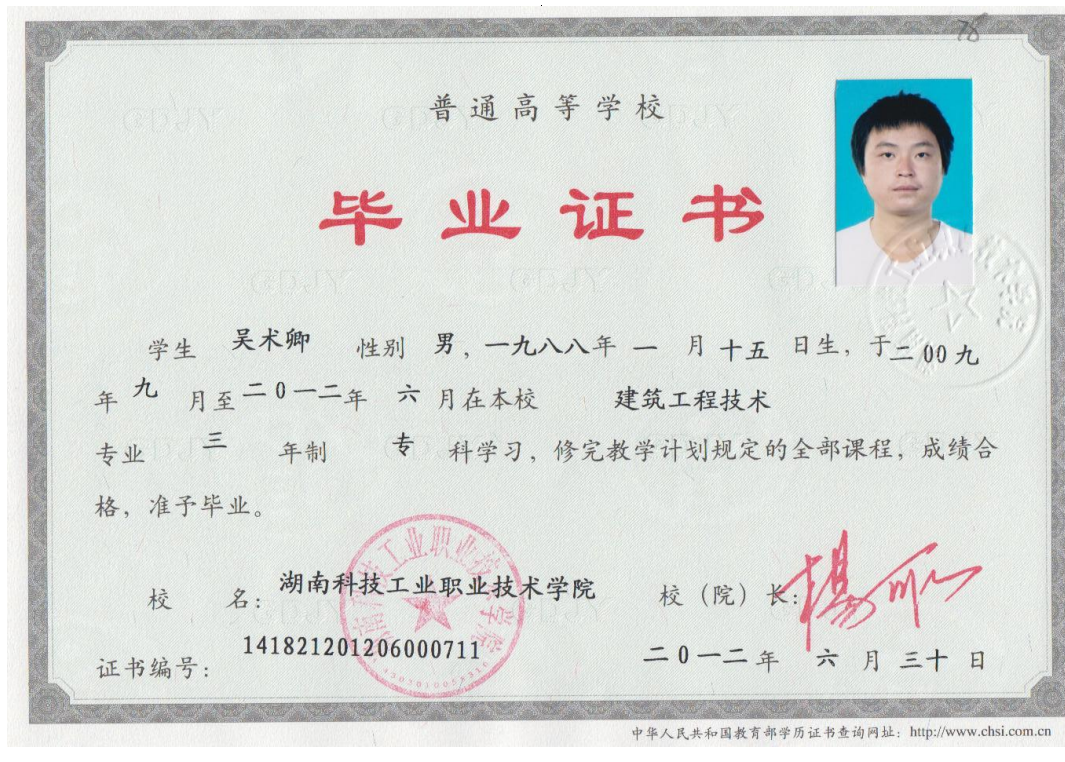 78
普通高等学校
毕业证书
学生 吴术卿 性别 男，一九八八年 一 月 十五 日生，于二00九
年 九 月至二0一二年 六 月在本校 建筑工程技术
专业 三 年制 专 科学习，修完教学计划规定的全部课程，成绩合
格，准予毕业。
校 名：湖南科技工业职业技术学院 校（院）长：
证书编号：141821201206000711 二0一二年 六 月 三十 日
中华人民共和国教育部学历证书查询网址：http://www.chsi.com.cn